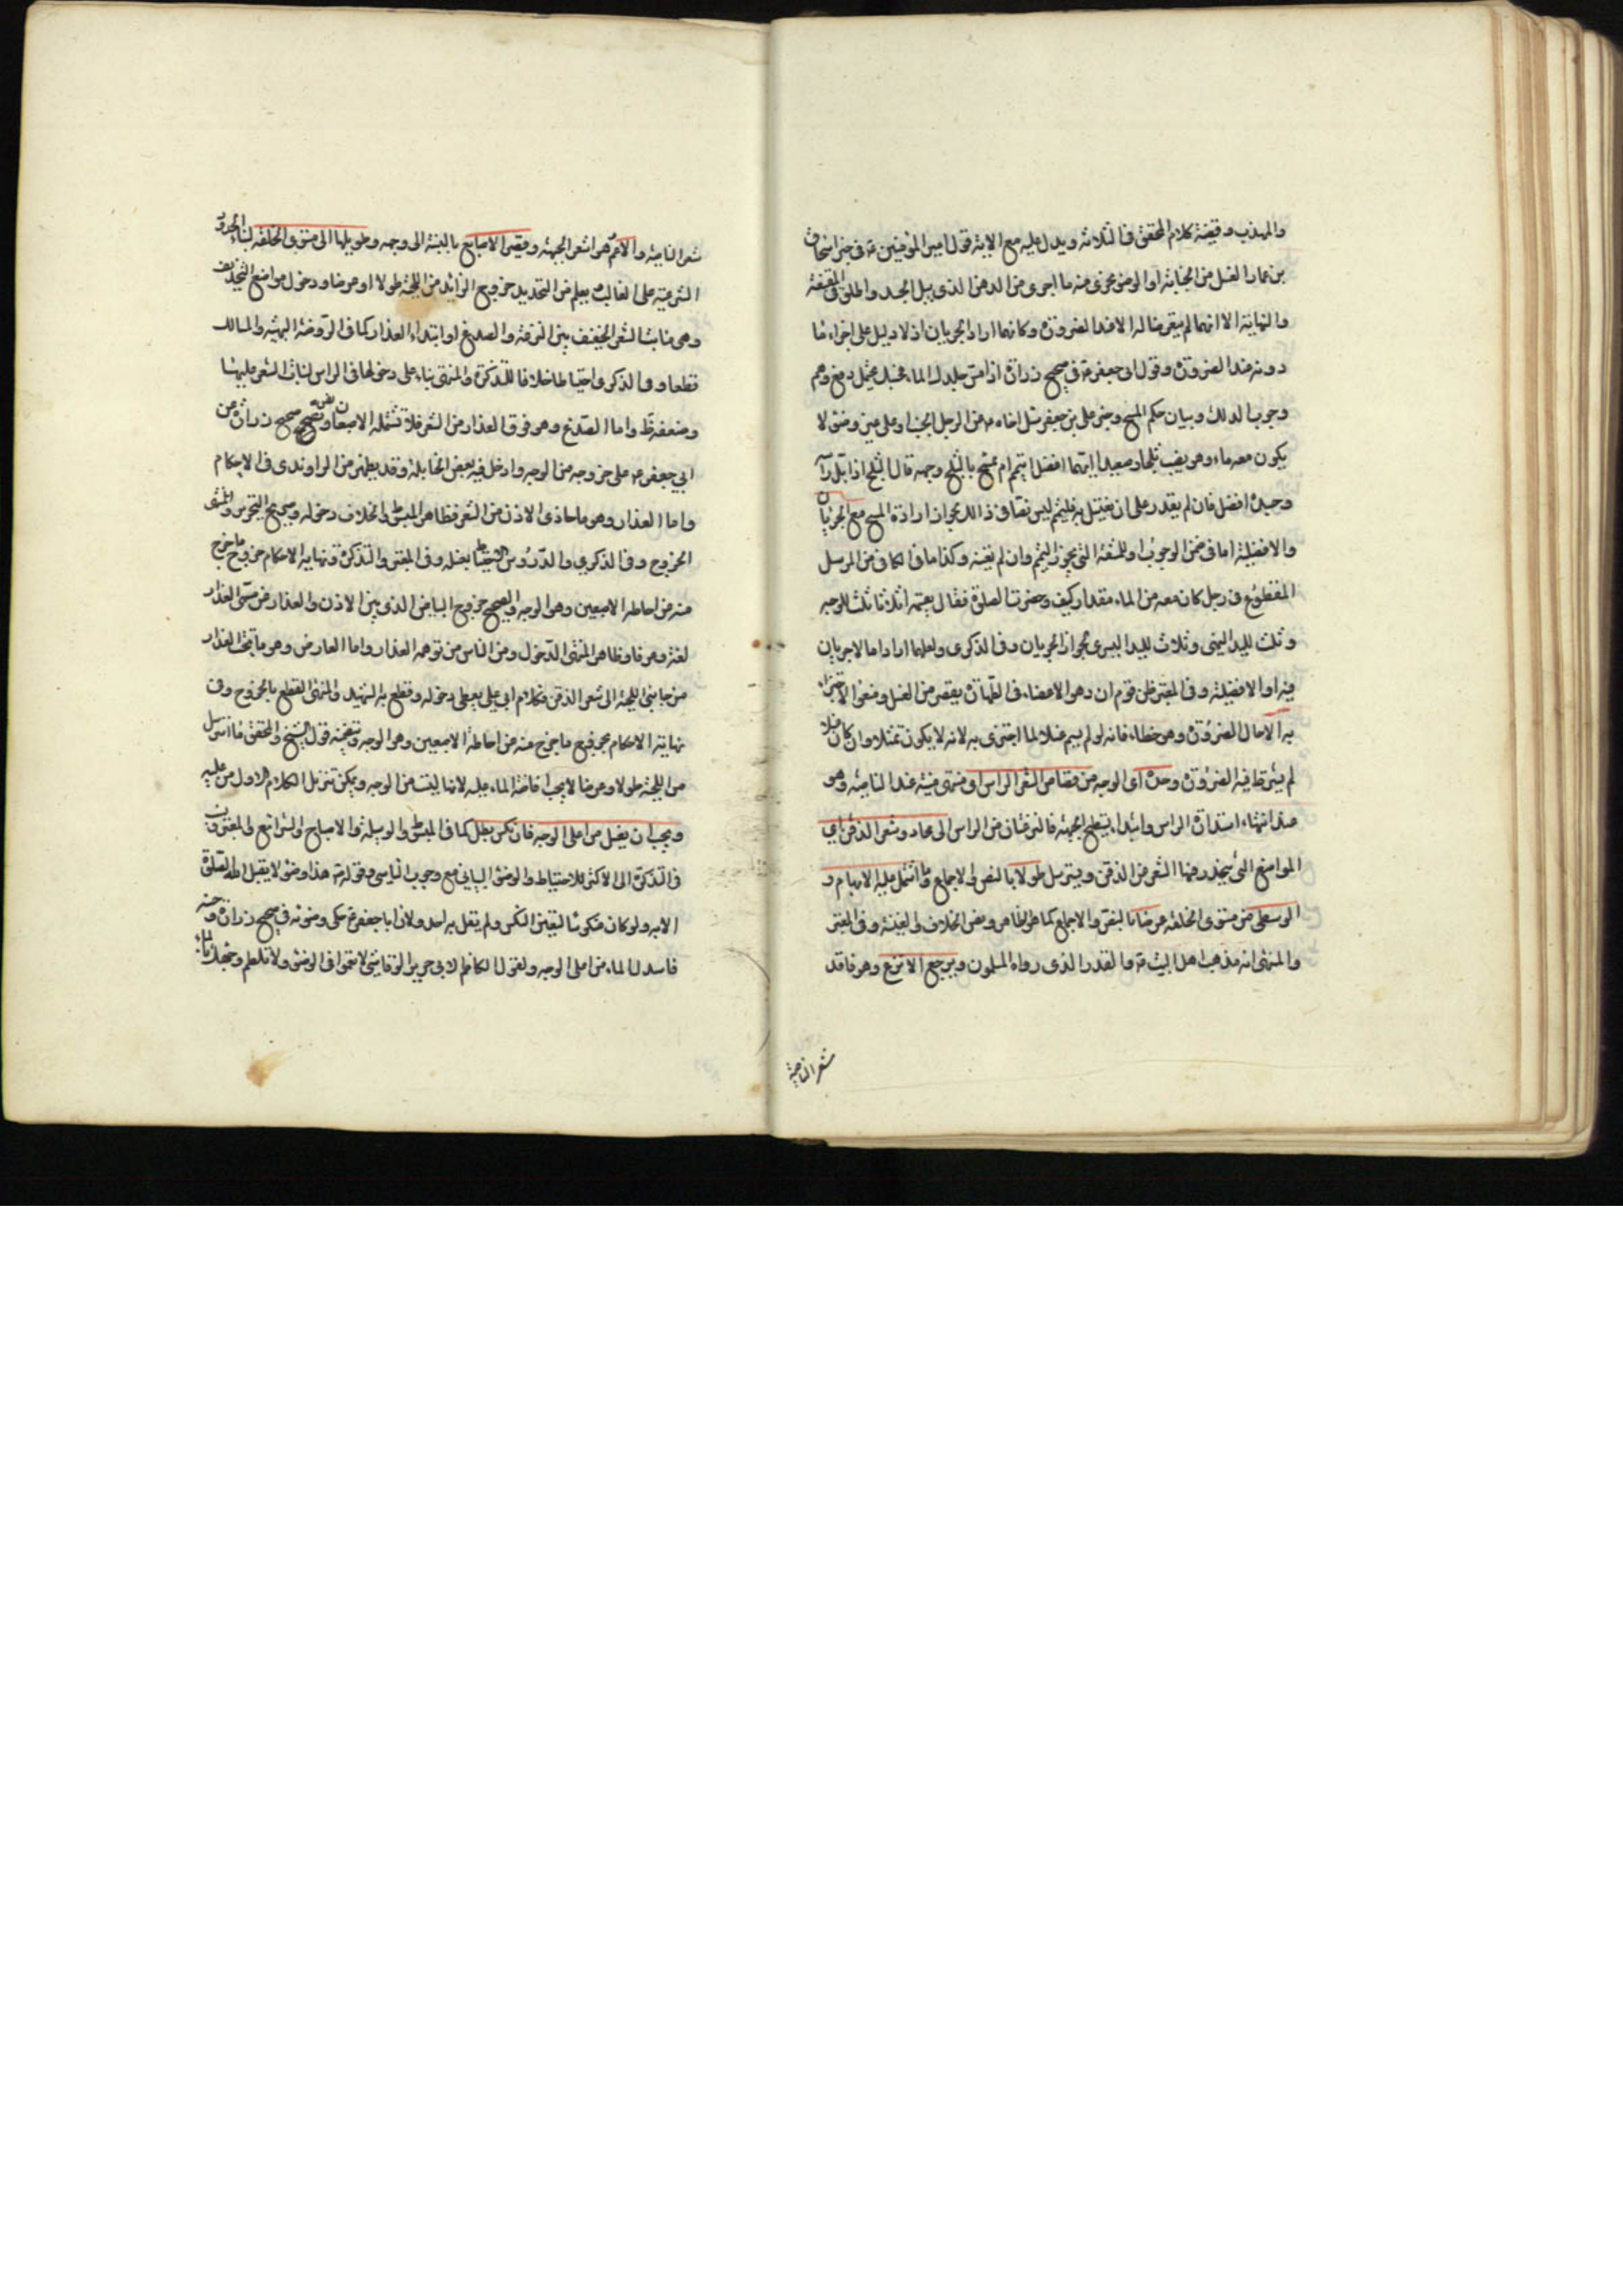 والمهذب وقضية كلام المحقق في الثلاثة ويدل عليه مع الاية قول امير المؤمنين ع في خبر اسحاق
بن عمار الغسل من الجنابة او الوضوء يجزى منه ما اجرى من الدهن الذى يبل الجسد واطلق في المقنعة
والنهاية الا انهما لم يتعرضا له الا عند الضرورة وكانهما ارادا الجريان اذ لا دليل على اجزاء ما
دونه عند الضرورة وقول ابى جعفر ع في صحيح زرارة اذا مس جلدك الماء فحسبك يحتمل دفع وهم
وجوب الدلك وبيان حكم المسح وخبر على بن جعفر سئل اخاه ع عن الرجل الجنب او على غير وضوء لا
يكون معه ماء وهو يصيب ثلجا وصعيدا ايهما افضل ايتيمم ام يمسح بالثلج وجهه قال الثلج اذا بل راسه
وجسده افضل فان لم يقدر على ان يغتسل به فليتيمم ليس نصا في ذلك لجواز ارادة المسح مع الجريان
والافضلية اما في ضمن الوجوب او للمشقة التى يجوز التيمم وان لم يقينه وكذا ما في الكافى من المرسل
المقطوع في رجل كان معه من الماء مقدار كف وحضرت الصلوة فقال يقسمه اثلاثا ثلث للوجه
وثلث لليد اليمنى وثلاث لليد اليسرى لجواز الجريان وفي الذكرى ولعلهما ارادا ما لا جريان
فيه او الافضلية وفي المعتبر ظن قوم ان دهن الاعضاء في الطهارة يقصر من الغسل ومنعوا الاجتزاء
به الا حال الضرورة وهو خطاء فانه لو لم يسم غسلا لما اجتزى به لانه لا يكون تمثلا وان كان غسلا
لم يشترط فيه الضرورة وحده اى الوجه من قصاص الشعر الراس او منتهى منبته عند الناصية وهو
عند انتهاء استدارة الراس وابتداء تسطيح الجبهة فالنزعتان من الراس الى محاد وشعر الذقن اى
المواضع التى ينحدر فيها الشعر من الذقن ويسترسل طولا بالنص والاجماع وما اشتمل عليه الابهام و
الوسطى من مستوى الخلقة عرضا بالنص والاجماع كما هو ظاهر ونص الخلاف والغنية وفي المعتبر
والمنتهى انه مذهب اهل البيت ع والقدر الذى رواه المسلمون ويرجع الانزع وهو فاقد
شعر الناصية
شعر الناصية والاغم وهو اشعر الجبهة وقصير الاصابع بالنسبة الى وجهه وطويلها الى مستوى الخلقة لبناء الحدود
الشرعية على الغالب يعلم من التحديد خروج الزائد من اللحية طولا او عرضا ودخول مواضع التحذيف
وهى منابت الشعر الخفيف بين النزعة والصدغ او ابتداء العذار كما في الروضة البهية والمسالك
قطعا وفي الذكرى احتياطا خلافا للتذكرة والمنتهى بناء على دخولها في الراس لنبات الشعر عليها
وضعفه ظ واما الصدغ وهو فوق العذار من الشعر فلا تشمله الاصبعان ونص صحيح زرارة عن
ابي جعفر ع على خروجه من الوجه وادخل فيه بعض الحنابلة وقد يظهر من الراوندى في الاحكام
واما العذار وهو ما حاذى الاذن من الشعر فظاهر المبسوط والخلاف دخوله وصريح التحرير والمنتهى
الخروج وفي الذكرى والدروس الاحتياط بغسله وفي المعتبر والتذكرة ونهاية الاحكام خروج ما خرج
منه من احاطه الاصبعين وهو الوجه والصحيح خروج البياض الذى بين الاذن والعذار من مسمى العذار
لغة وعرفا وظاهر المنتهى الدخول ومن الناس من توهمه العذار واما العارض وهو ما تحت العذار
من جانبى اللحية الى شعر الذقن فكلام ابي على يعطى دخوله وقطع به الشهيد والمنتهى القطع بالخروج وفي
نهاية الاحكام بخروج ما خرج منه من احاطة الاصبعين وهو الوجه وقضية قول الشيخ والمحقق ما استرسل
من اللحية طولا وعرضا لا يجب افاضة الماء عليه لانها ليست من الوجه ويمكن تنزيل الكلام الاول من عليه
ويجب ان يغسل من اعلى الوجه فان نكس بطل كما في المبسوط والوسيلة والاصباح والشرائع والمعتبر
في التذكرة الى الاكثر للاحتياط والوضوء البيانى مع وجوب التاسى وقوله ع هذا وضوء لا يقبل الله الصلوة
الا به ولو كان منكوسا لتعين النكس ولم يقل به احد ولان ابا جعفر ع حكى وضوئه في صحيح زرارة وحسنه
فاسدل الماء من اعلى الوجه ولقول الكاظم لابى جرير الرقاشى لا تعمق في الوضوء ولا تلطم وجهك بالماء